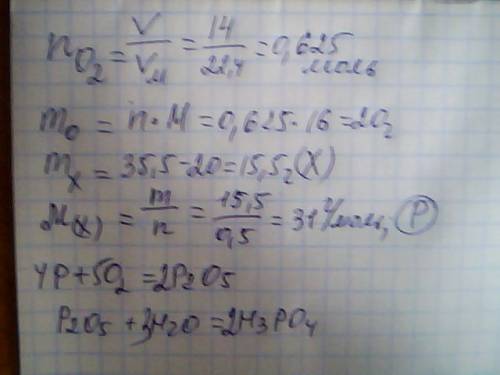 n O₂ = V/Vм = 14/22,4 = 0,625 моль
m o = n·M = 0,625·16 = 20г
m x = 35,5-20 = 15,5г (X)
M(x) = m/n = 15,5/0,5 = 31 г/моль, P
4P+5O₂=2P₂O₅
P₂O₅ +3H₂O =2H₃PO₄